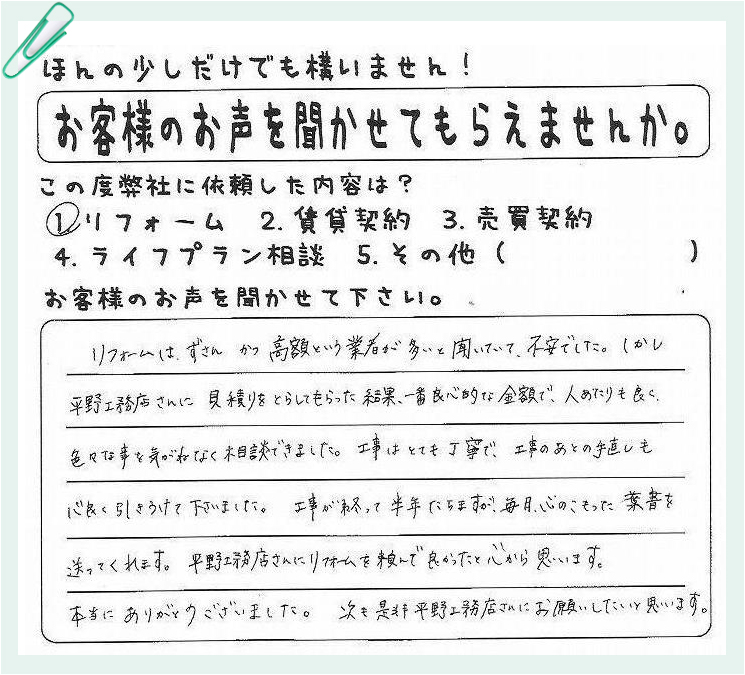 ほんの少しだけでも構いません！
お客様のお声を聞かせてもらえませんか。
この度弊社に依頼した内容は？
①リフォーム 2. 賃貸契約 3. 売買契約
4. ライフプラン相談 5. その他（ ）
お客様のお声を聞かせて下さい。
リフォームは、ずさん かつ 高額という業者が多いと聞いていて、不安でした。しかし
平野工務店さんに 見積りをとらしてもらった結果、一番良心的な金額で、人あたりも良く、
色々な事を気がねなく相談できました。工事はとても丁寧で、工事のあとの手直しも
心良く引きうけて下さいました。 工事が終って半年たちますが、毎月、心のこもった葉書を
送ってくれます。平野工務店さんにリフォームを頼んで良かったと心から思います。
本当にありがとうございました。 次も是非平野工務店さんにお願いしたいと思います。